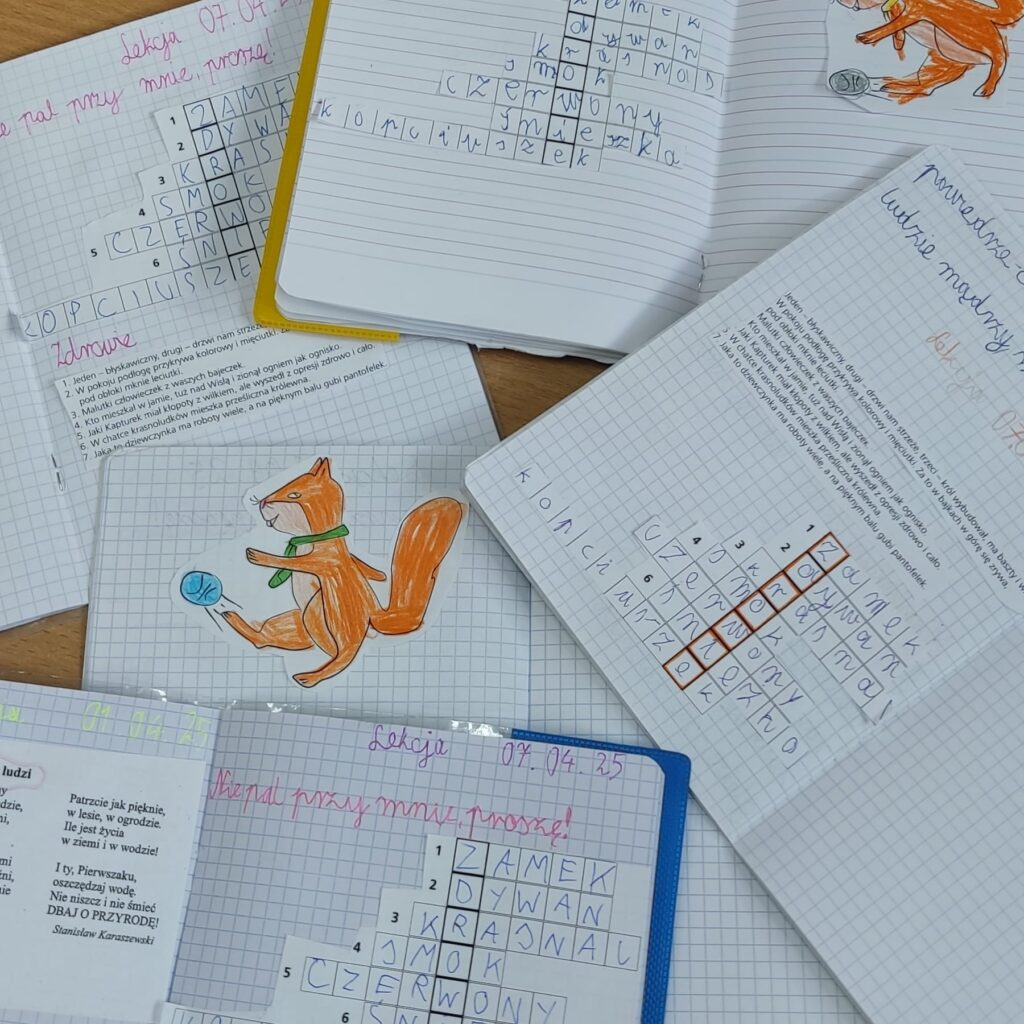 Lekcja 07.04.25
Nie pal przy mnie, proszę!
1 ZAMEK
2 DYWAN
3 KRASNAL
4 SMOK
5 CZERWONY
6
01 04 25
ludzi
Patrzcie jak pięknie,
w lesie, w ogrodzie.
Ile jest życia
w ziemi i w wodzie!
I ty, Pierwszaku,
oszczędzaj wodę.
Nie niszcz i nie śmieć
DBAJ O PRZYRODĘ!
Stanisław Karaszewski
Lekcja 07.04.2
pal przy mnie, proszę!
1 ZAME
2 DYWA
3 KRAS
4 SMOK
5 CZERWO
6 ŚNIE
KOPCIUSZE
Zdrowie
1. Jeden – błyskawiczny, drugi – drzwi nam strzeże,
2. W pokoju podłogę przykrywa kolorowy i mięciutki. Za
pod obłoki mknie leciutki.
3. Malutki człowieczek z waszych bajeczek.
4. Kto mieszkał w jamie, tuż nad Wisłą i zionął ogniem jak ognisko.
5. Jaki Kapturek miał kłopoty z wilkiem, ale wyszedł z opresji zdrowo i cało.
6. W chatce krasnoludków mieszka prześliczna królewna.
7. Jaka to dziewczynka ma roboty wiele, a na pięknym balu gubi pantofelek.
dywan
smok
czerwony
śnieszka
kopciuszek
powiedzą
ludzie mądrzy
Jeden – błyskawiczny, drugi – drzwi nam strzeże, trzeci – król wybudował, ma baszty i w
W pokoju podłogę przykrywa kolorowy i mięciutki. Za to w bajkach w górę się zrywa,
pod obłoki mknie leciutki.
Malutki człowieczek z waszych bajeczek.
Kto mieszkał w jamie, tuż nad Wisłą i zionął ogniem jak ognisko.
Jaki Kapturek miał kłopoty z wilkiem, ale wyszedł z opresji zdrowo i cało.
W chatce krasnoludków mieszka prześliczna królewna.
7. Jaka to dziewczynka ma roboty wiele, a na pięknym balu gubi pantofelek.
1 zamek
2 dywan
3 krasnal
4 smok
czerwony
6
kopciuszek